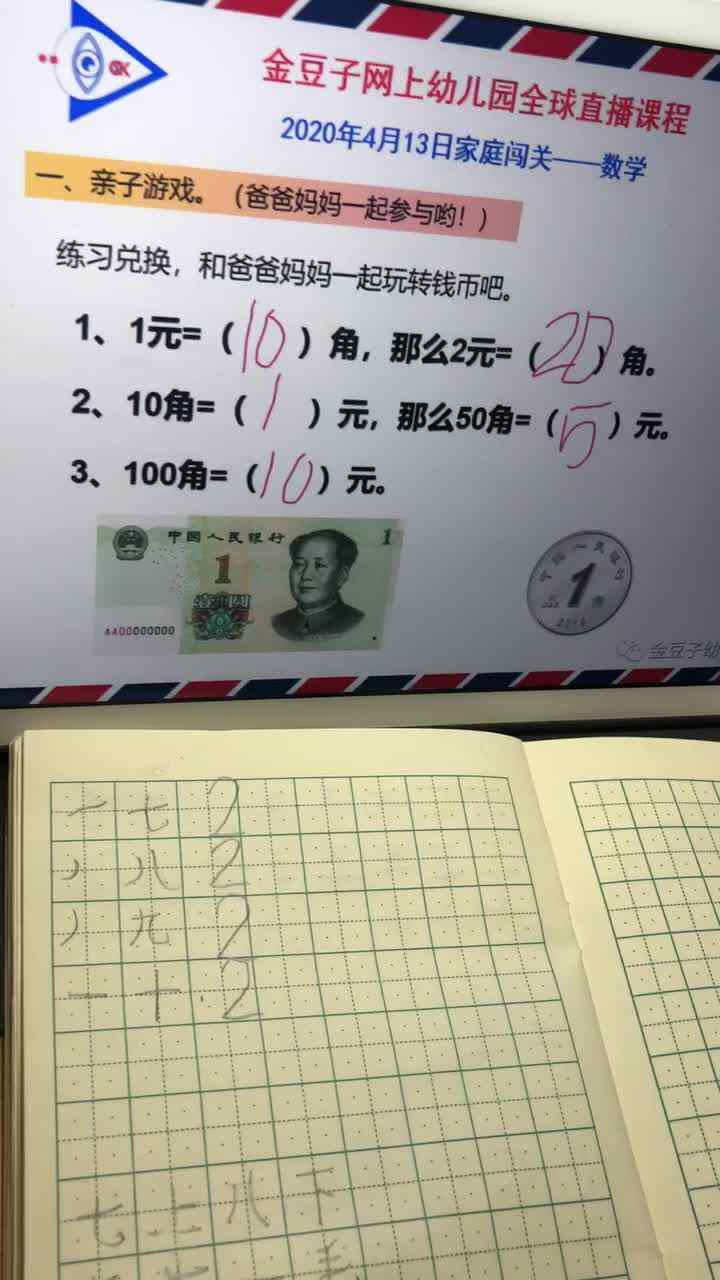 金豆子网上幼儿园全球直播课程
2020年4月13日家庭闯关——数学
一、亲子游戏。（爸爸妈妈一起参与哟！）
练习兑换，和爸爸妈妈一起玩转钱币吧。
1、1元=（10）角，那么2元=（20）角。
2、10角=（1）元，那么50角=（5）元。
3、100角=（10）元。
中国人民银行
1
1
壹圆
AA00000000
中国人民银行
1
金豆子幼
一 七 2
八 2
九 2
一 十 2
七 上 八 下